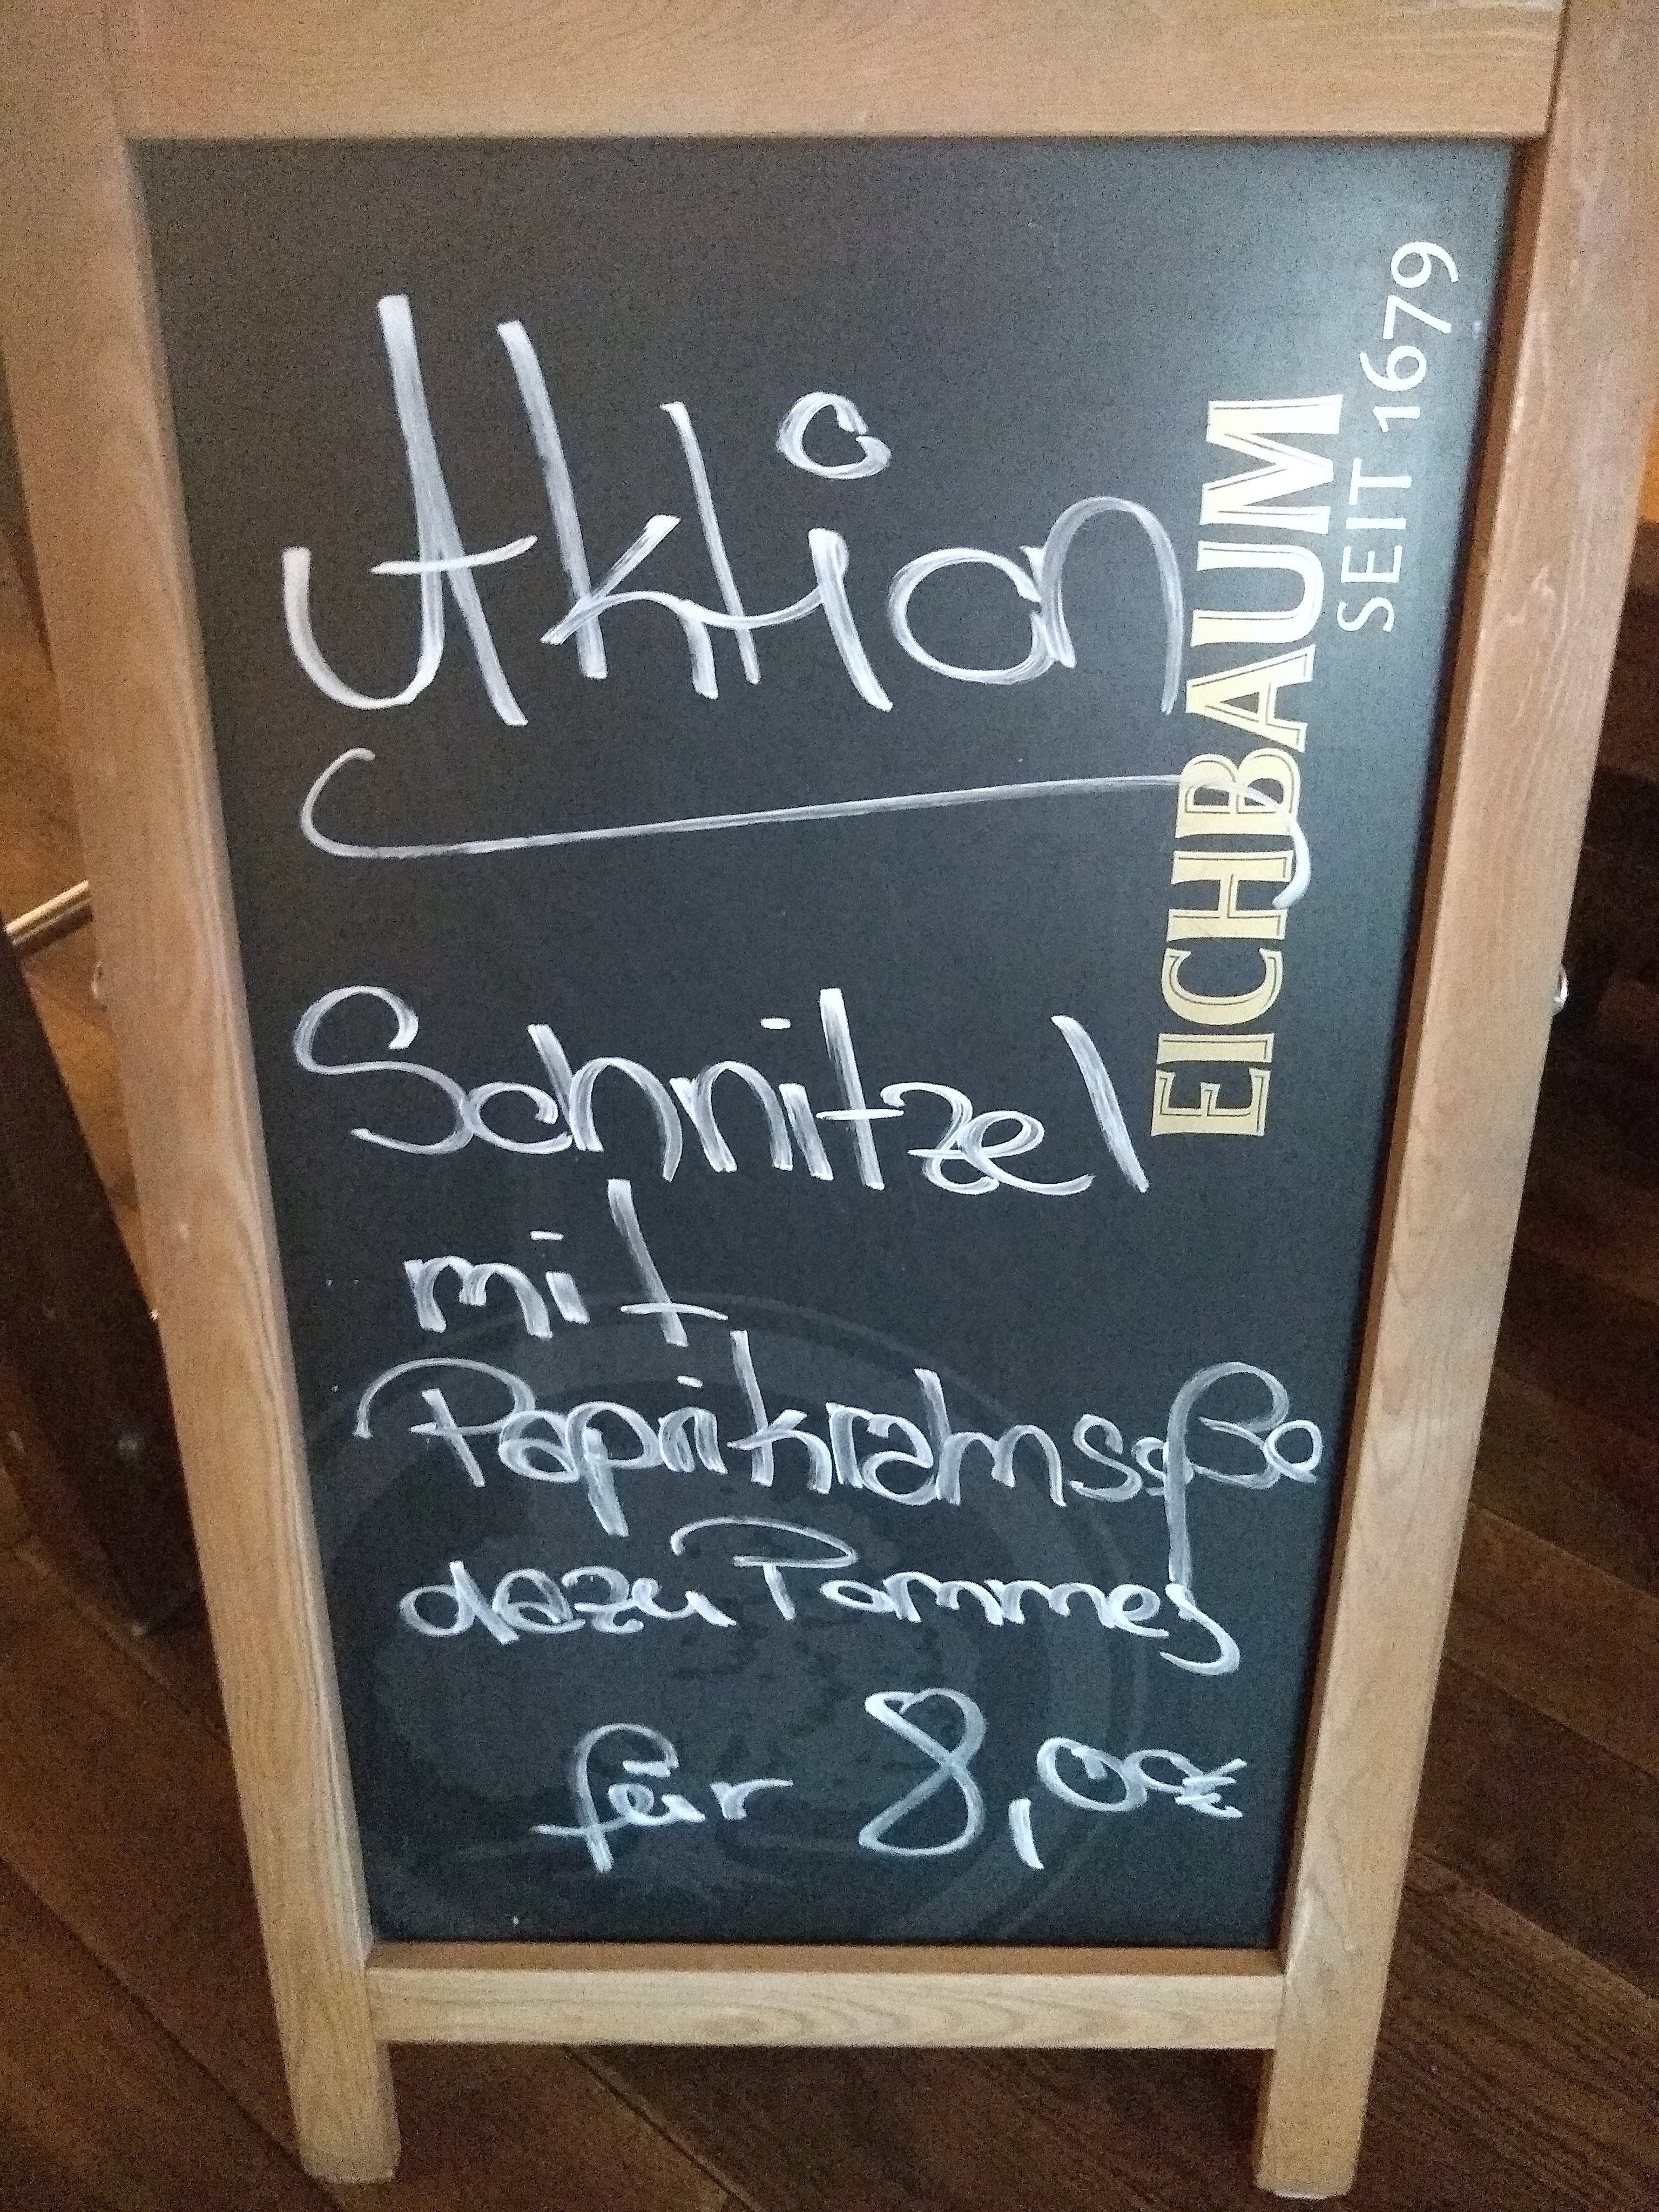 Aktion
Schnitzel
mit
Paprikrahmsoße
dazu Pommes
für 8,00€
EICHBAUM
SEIT 1679